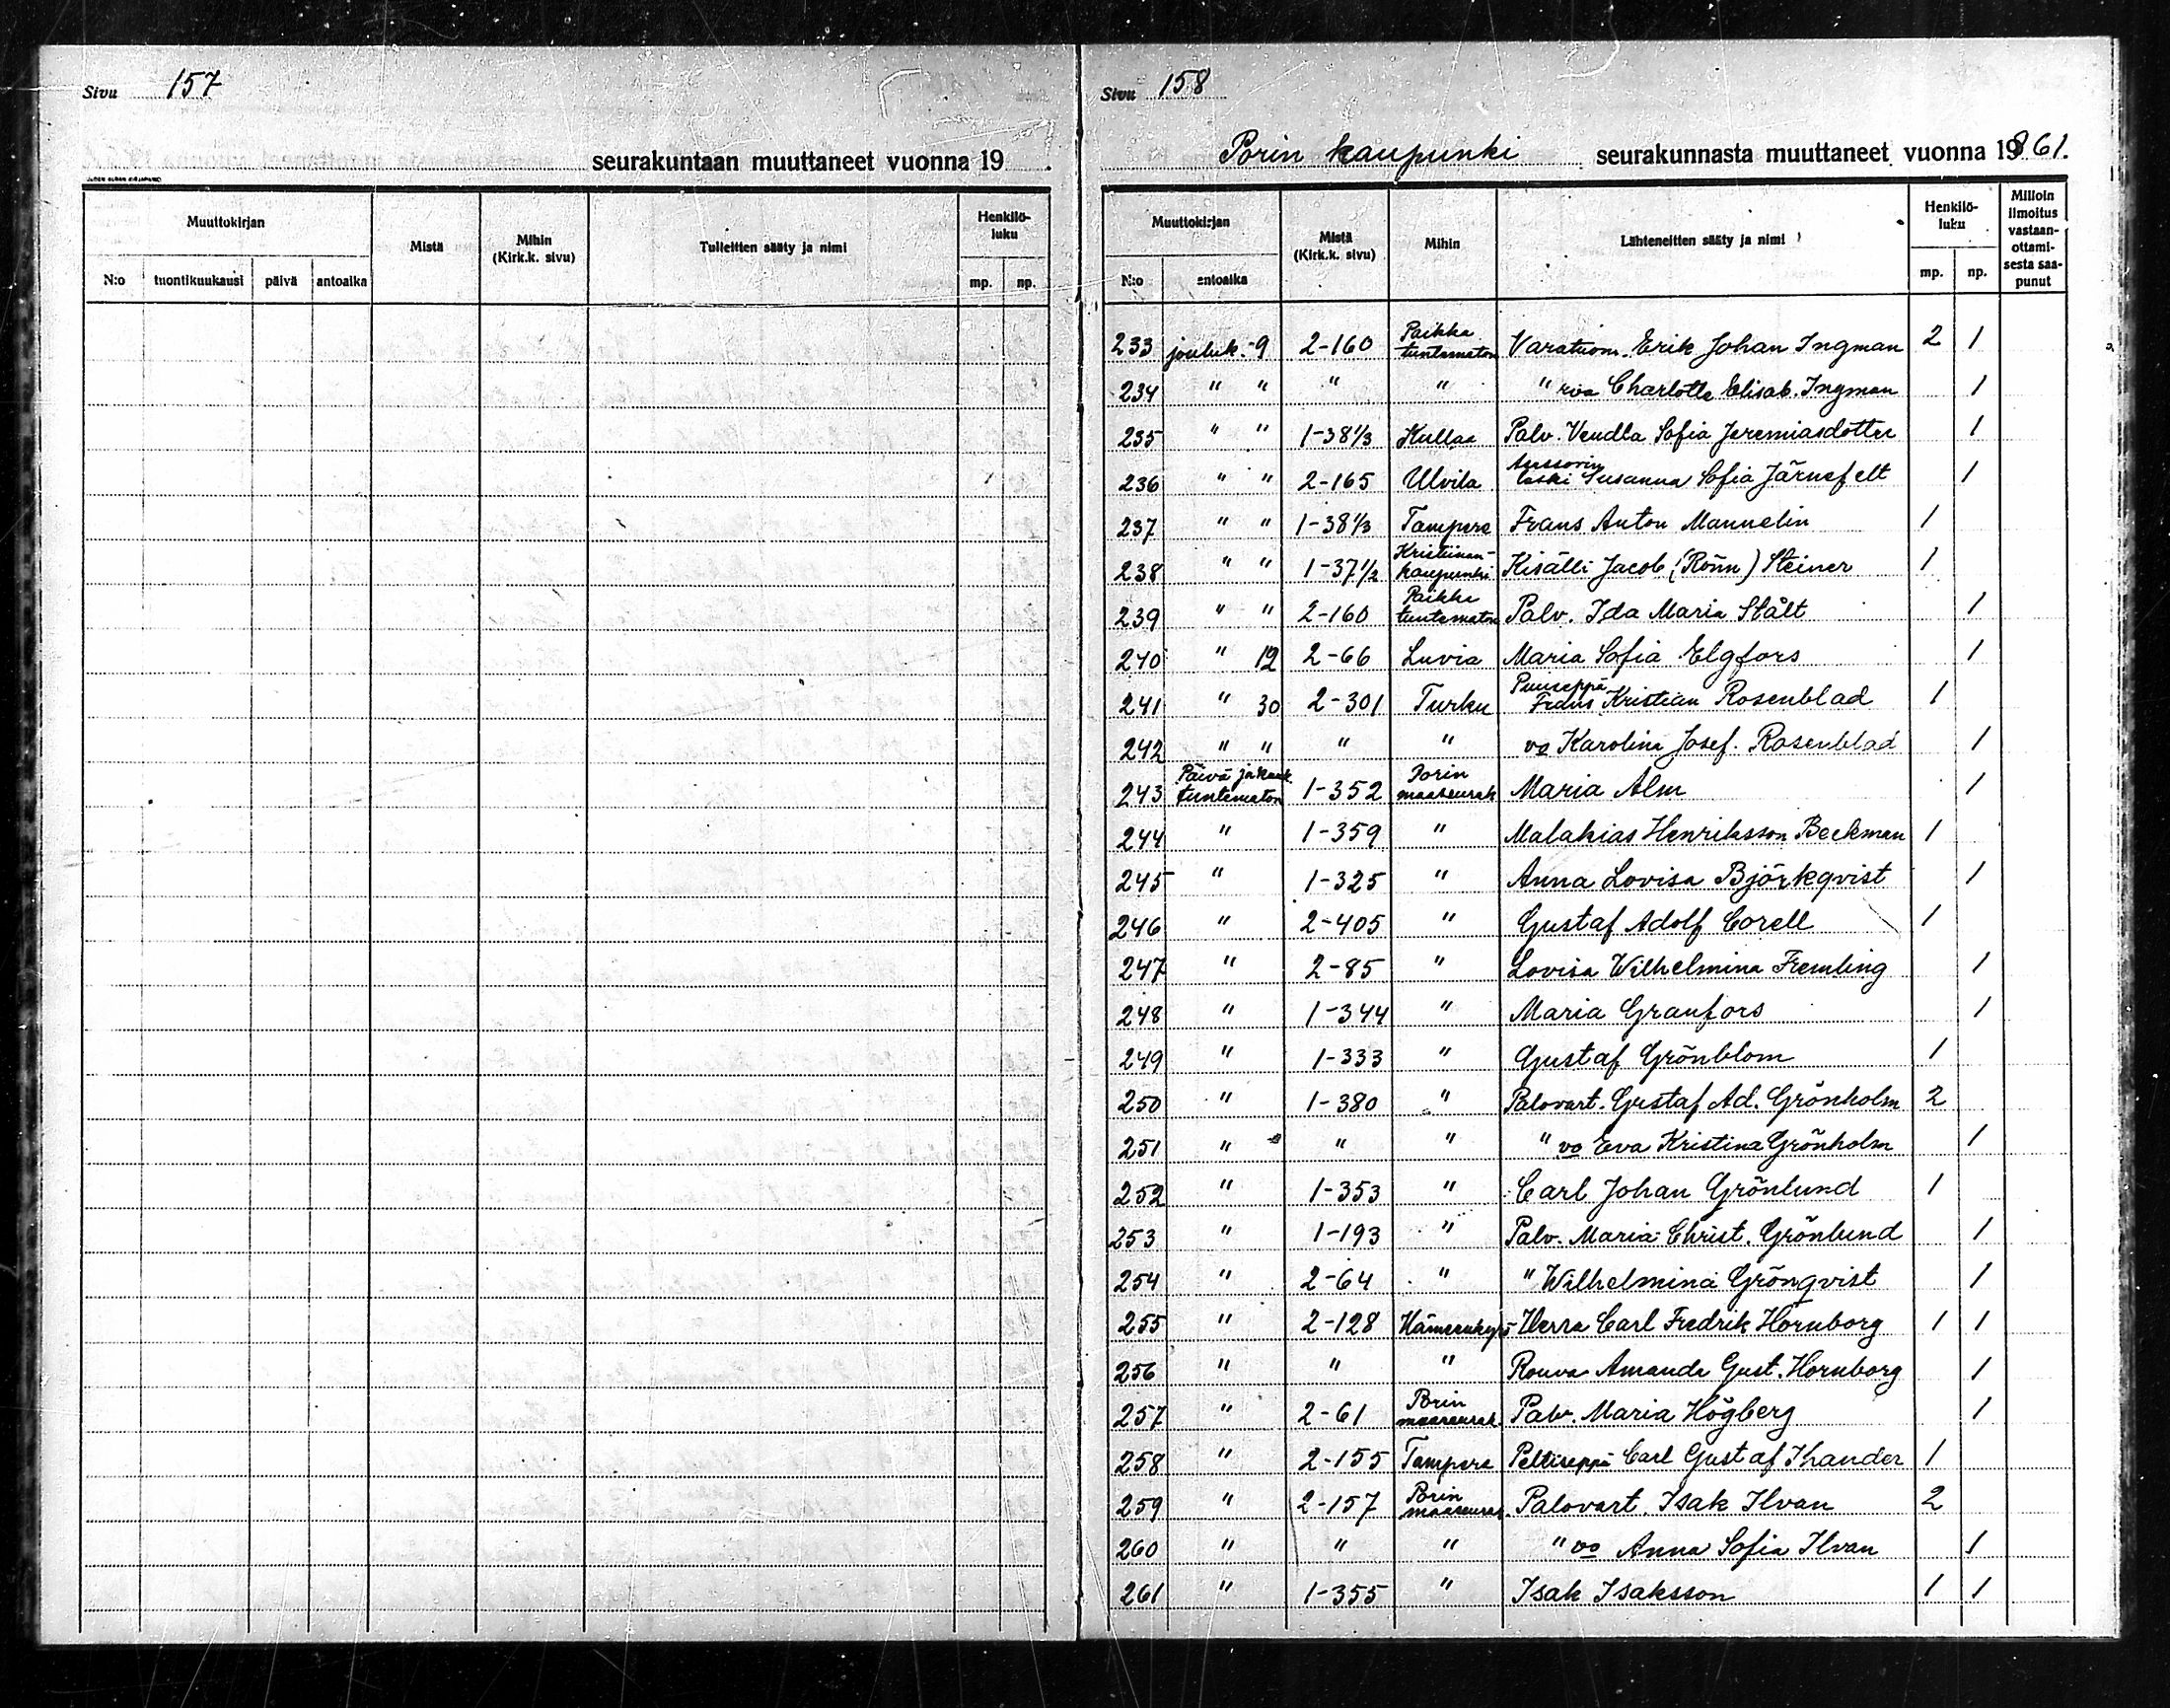 Sivu 157
seurakuntaan muuttaneet vuonna 19
Muuttokirjan
Mistä
Mihin
(Kirk.k. sivu)
Tulleitten sääty ja nimi
Henkilö-
luku
N:o tuontikuukausi päivä antoaika
mp. np.
Sivu 158
Porin kaupunki seurakunnasta muuttaneet vuonna 19861.
Muuttokirjan
Mistä
(Kirk.k. sivu)
Mihin
Lähteneitten sääty ja nimi
Henkilö-
luku
Milloin
ilmoitus
vastaan-
ottami-
sesta saa-
punut
N:o antoaika
mp. np.
233 jouluk. 9 2-160 Paikka tuntematon Varatuom. Erik Johan Ingman 2 1
234 " " " " " rva Charlotta Elisab. Ingman 1
235 " " 1-38 1/3 Kullaa Palv. Vendla Sofia Jeremiasdotter 1
236 " " 2-165 Ulvila leski Susanna Sofia Järnefelt 1
237 " " 1-38 1/3 Tampere Frans Anton Mannelin 1
238 " " 1-37 1/2 Kristiinan-kaupunki Kisälli Jacob (Rönn) Steiner 1
239 " " 2-160 Paikka tuntematon Palv. Ida Maria Stålt 1
240 " 12 2-66 Luvia Maria Sofia Elgfors 1
241 " 30 2-301 Turku Puuseppä Frans Kristian Rosenblad 1
242 " " " " vo Karolina Josef. Rosenblad 1
243 Päivä ja kuuk. tuntematon 1-352 Porin maaseurak Maria Alm 1
244 " 1-359 " Malakias Henriksson Beckman 1
245 " 1-325 " Anna Lovisa Björkqvist 1
246 " 2-405 " Gustaf Adolf Corell 1
247 " 2-85 " Lovisa Wilhelmina Fremling 1
248 " 1-344 " Maria Granfors 1
249 " 1-333 " Gustaf Grönblom 1
250 " 1-380 " Palovart. Gustaf Ad. Grönholm 2
251 " " " " vo Eva Kristina Grönholm 1
252 " 1-353 " Carl Johan Grönlund 1
253 " 1-193 " Palv. Maria Christ. Grönlund 1
254 " 2-64 " " Wilhelmina Grönqvist 1
255 " 2-128 Hämeenkyrö Herra Carl Fredrik Hornborg 1 1
256 " " " Rouva Amanda Gust. Hornborg 1
257 " 2-61 Porin maaseurak. Palv. Maria Högberg 1
258 " 2-155 Tampere Peltiseppä Carl Gustaf Ihander 1
259 " 2-157 Porin maaseurak. Palovart. Isak Ilvan 2
260 " " " " vo Anna Sofia Ilvan 1
261 " 1-355 " Isak Isaksson 1 1